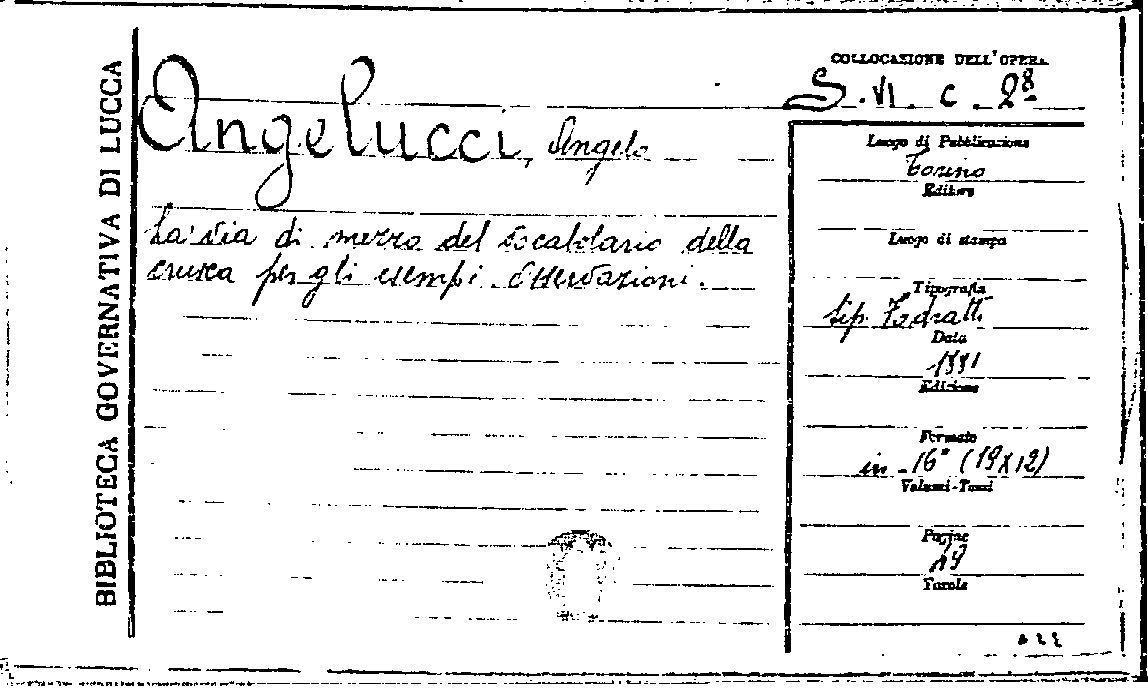 BIBLIOTECA GOVERNATIVA DI LUCCA
Angelucci, Angelo
La via di mezzo del vocabolario della
crusca per gli esempi. Osservazioni.
COLLOCAZIONE DELL'OPERA
S. VI. C. 28
Luogo di Pubblicazione
Torino
Editore
Luogo di stampa
Tipografia
tip.
Data
Edizione
Formato
in - 16° (19 X 12)
Volumi-Tomi
Pagine
19
Tavole